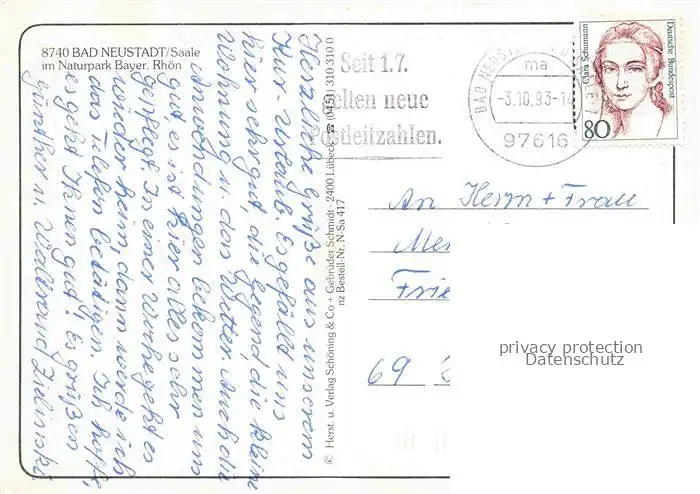 8740 BAD NEUSTADT/Saale
im Naturpark Bayer. Rhön
Herzliche Grüße aus unserem
Kur-Urlaub. Es gefällt uns
hier sehr gut, die Gegend, die kleine
Wohnung u. das Wetter. Auch die
Anwendungen bekommen uns
gut, es ist hier alles sehr
gepflegt. In einer Woche geht es
wieder heim, dann werde ich
das Telefon betätigen. Ich hoffe,
es geht Ihnen gut! Es grüßen
Günther u. Waltraud Zielinski
© Herst. u. Verlag Schöning & Co + Gebrüder Schmidt · 2400 Lübeck ☎ (0451) 310 310 0
nz Bestell-Nr. N-Sa 417
Seit 1.7.
gelten neue
Postleitzahlen.
BAD NEUST
ma
-3.10.93-1
97616
Clara Schumann
Deutsche Bundespost
80
An Herrn + Frau
Me
Frie
69
privacy protection
Datenschutz